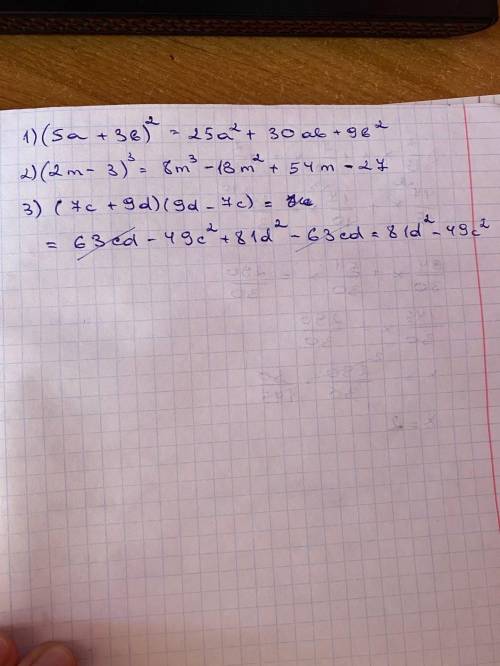 1) (5a + 3в)² = 25a² + 30aв + 9в²
2) (2m - 3)³ = 8m³ - 18m² + 54m - 27
3) (7c + 9d)(9d - 7c) =
= 63cd - 49c² + 81d² - 63cd = 81d² - 49c²